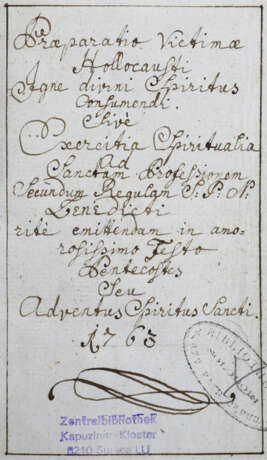 Præparatio Victimæ
Hollocausti
Igne divini Spiritus
Consumendi.
Sivè
Exercitia Spiritualia
Ad
Sanctam Professionem
Secundum Regulam S: P: N:
Benedicti
ritè emittendam in amo-
rosissimo Festo
Pentecostes
Seu
Adventus Spiritus Sancti.
1763
Zentralbibliothek
Kapuziner-Kloster
6210 Sursee LU